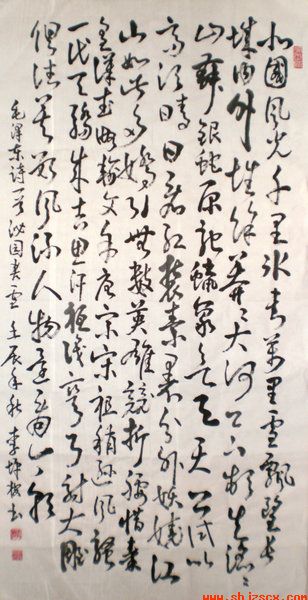 北國风光千里冰封萬里雪飘望长
城内外惟余莽莽大河上下顿失滔滔
山舞銀蛇原驰蠟象欲与天公试比
高须晴日看红装素裹分外妖娆江
山如此多娇引無數英雄競折腰惜秦
皇漢武略输文采唐宗宋祖稍逊风骚
一代天骄成吉思汗祗识弯弓射大雕
俱往矣數风流人物还看今朝
毛澤东诗一首沁园春雪 壬辰年秋 李坤书
www.shjzscx.com